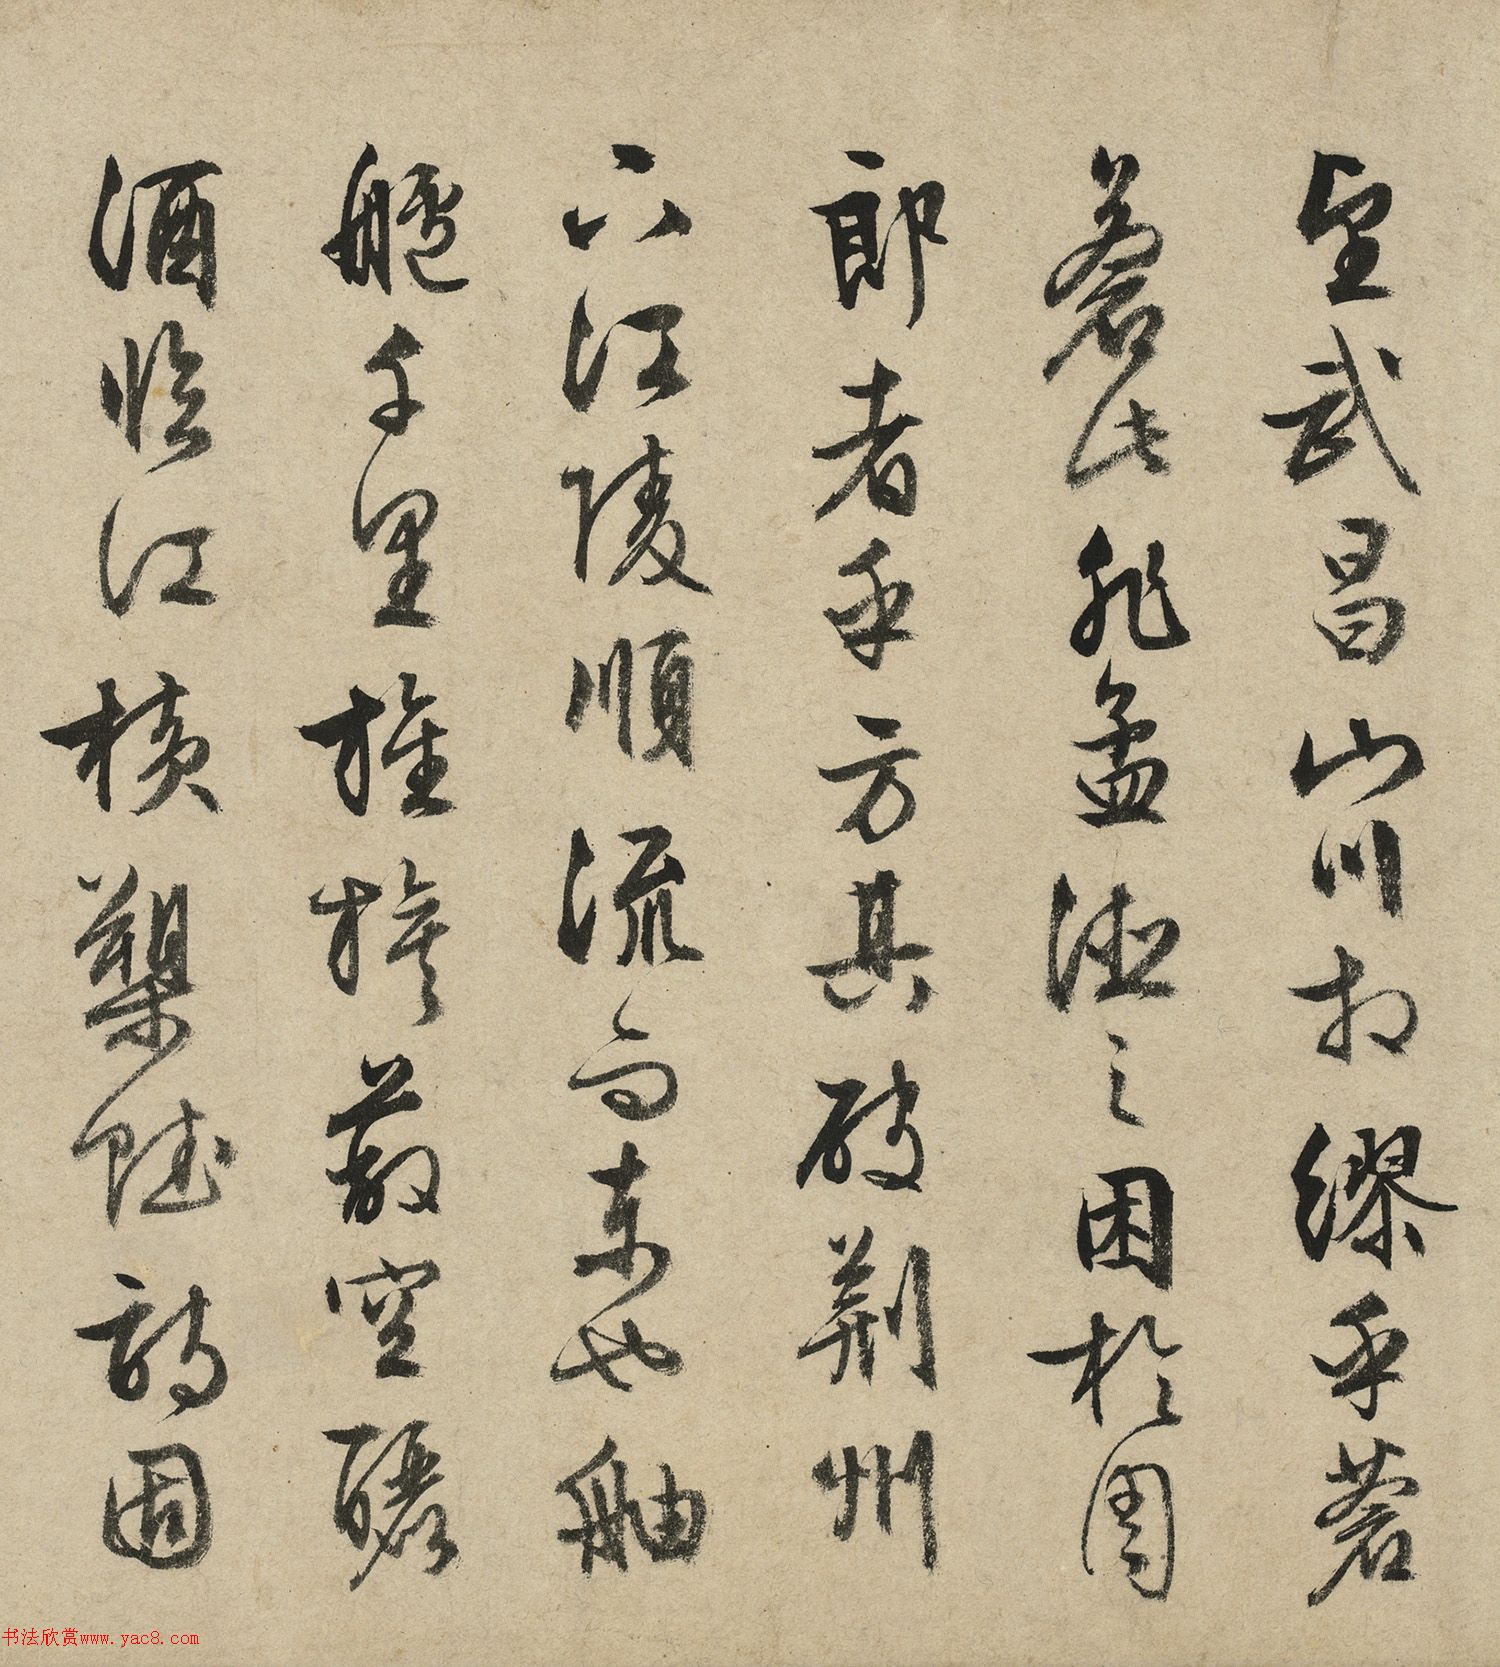 望武昌山川相繆乎蒼
蒼此非孟德之困於周
郎者乎方其破荆州
下江陵順流而東也舳
艫千里旌旗蔽空釃
酒臨江橫槊賦詩固
书法欣赏www.yac8.com